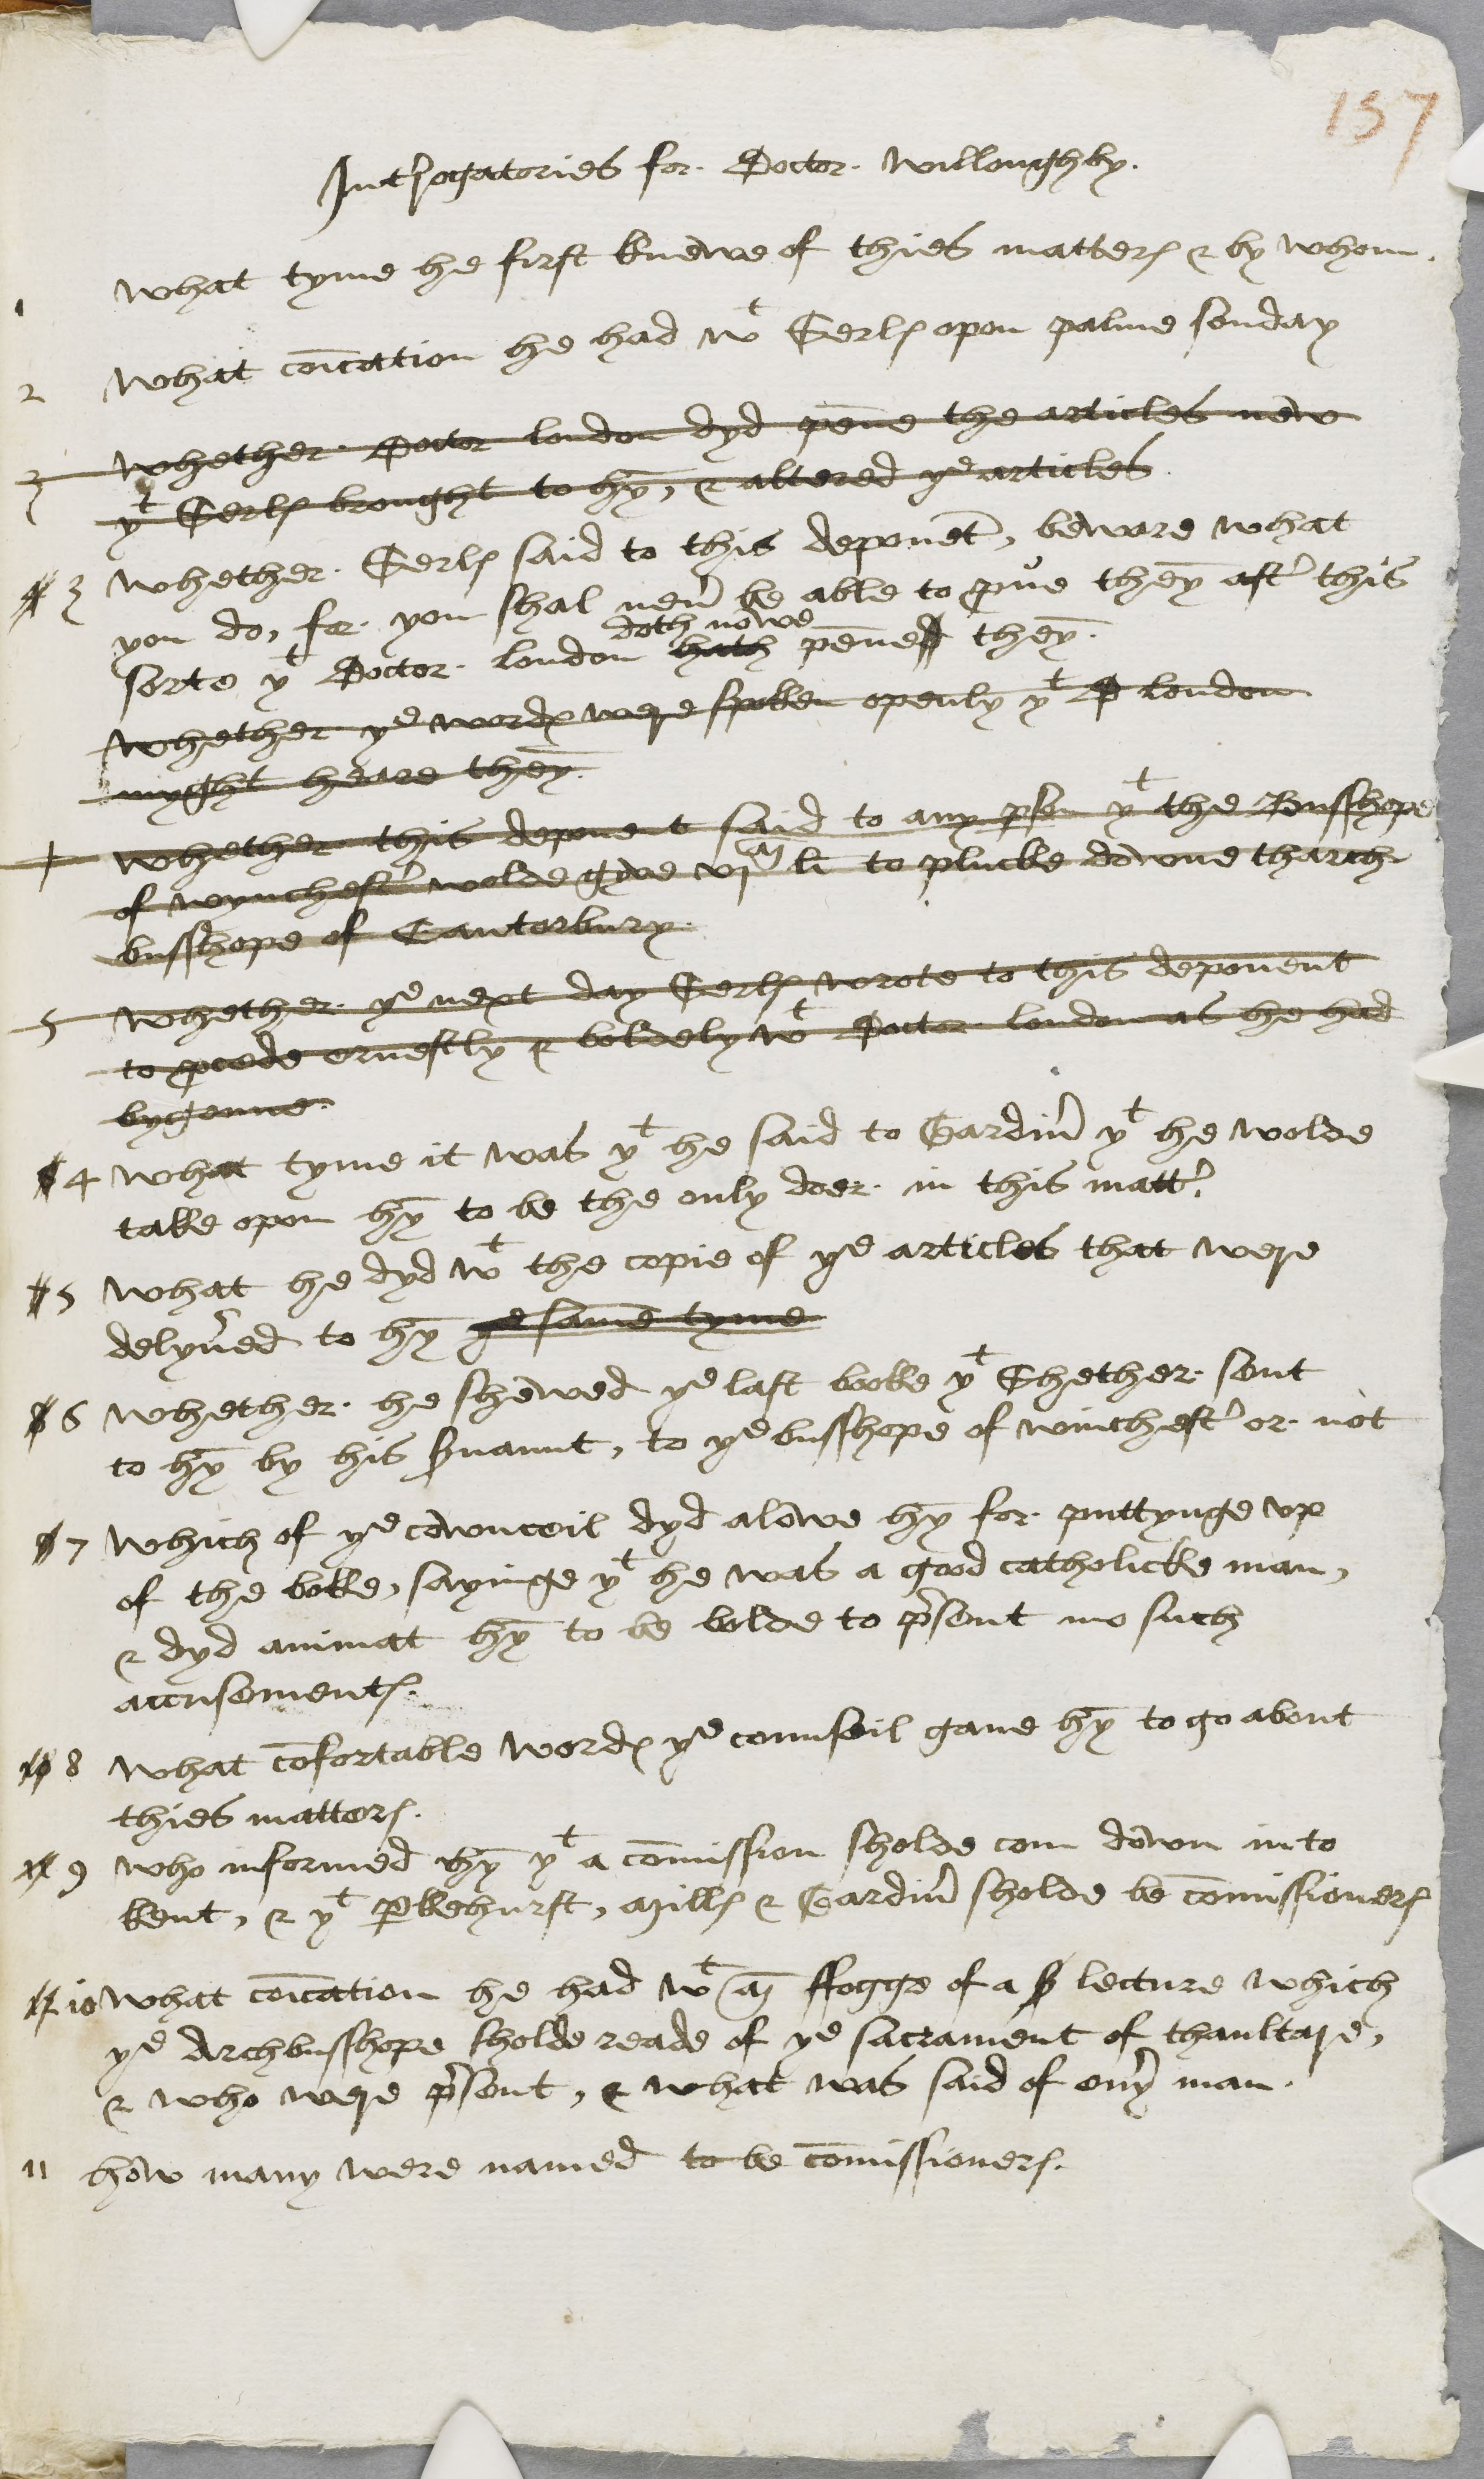 157
Int'rogatories for Doctor Willoughby.
1 What tyme he first knewe of thies matters & by whom.
2 What coīcation he had wt Serls opon palme sonday
3 Whether Doctor london dyd pēne the articles new
yt Serls brought to hȳ, & altered ye articles
3 Whether Serls said to this deponēt, beware what
you do, for you shal neu' be able to prve theȳ aft' this
doth nowe
sorte yt Doctor london hath pēned theȳ.
Whether ye words were spoken openly yt D london
myght heare theȳ.
Whether this deponent said to any pson yt the Busshope
of wynchest' wolde gyve vjM li to plucke downe tharch
busshope of Cantorbury.
5 Whether ye next day Serls wrote to this deponent
to procede ernestly & boldely wt Doctor london as he had
bygonne.
4 What tyme it was yt he said to Gardin' yt he wolde
take opon hȳ to be the only doer in this matt'.
5 What he dyd wt the copie of ye articles that were
delyu'ed to hȳ ye same tyme
6 Whether he shewed ye last booke yt Thether sent
to hȳ by his s'uaunt, to ye busshope of winchest' or not
7 Which of ye cownceil dyd alowe hȳ for puttynge vp
of the boke, sayinge yt he was a good catholicke man,
& dyd animat hȳ to be bolde to p'sent mo such
accusements.
8 What cōfortable words ye counseil gave hȳ to go about
thies matters.
9 Who informed hȳ yt a cōmission sholde com down into
kent, & yt Pkehurst, Mills & Gardin' sholde be cōmissioners
10 What coīcation he had wt M ffogge of a lecture which
ye Archbusshope sholde reade of ye sacrament of thaultare,
& who were p'sent, & what was said of eu'y man.
11 how many were named to be cōmissioners.